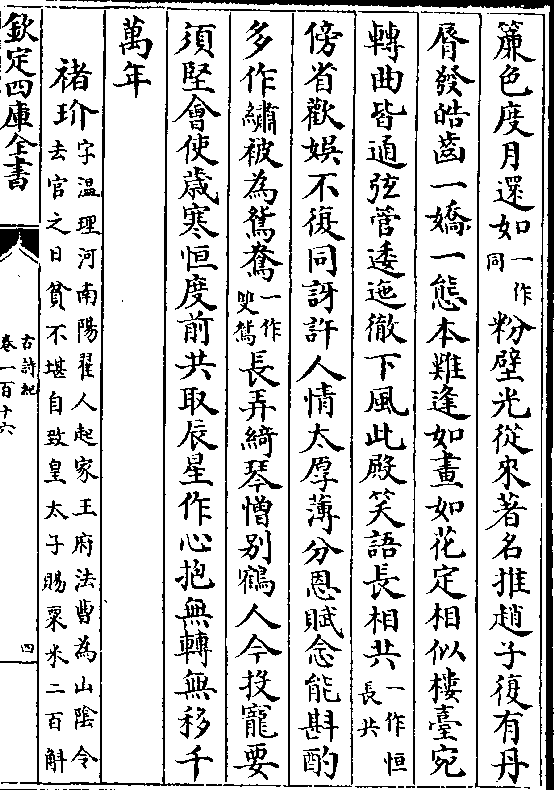 簾色度月還如一作同粉壁光從來著名推趙子復有丹
脣發皓齒一嬌一態本難逢如畫如花定相似樓臺宛
轉曲皆通弦管逶迤徹下風此殿笑語長相共一作恒長共
傍省歡娛不復同訝許人情太厚薄分恩賦念能斟酌
多作繡被為鴛鴦一作雙鴛長弄綺琴憎別鶴人今投寵要
須堅會使歲寒恒度前共取辰星作心抱無轉無移千
萬年
褚玠字溫理河南陽翟人起家王府法曹為山陰令
去官之日貧不堪自致皇太子賜粟米二百斛
欽定四庫全書
古詩紀
卷一百十六
四